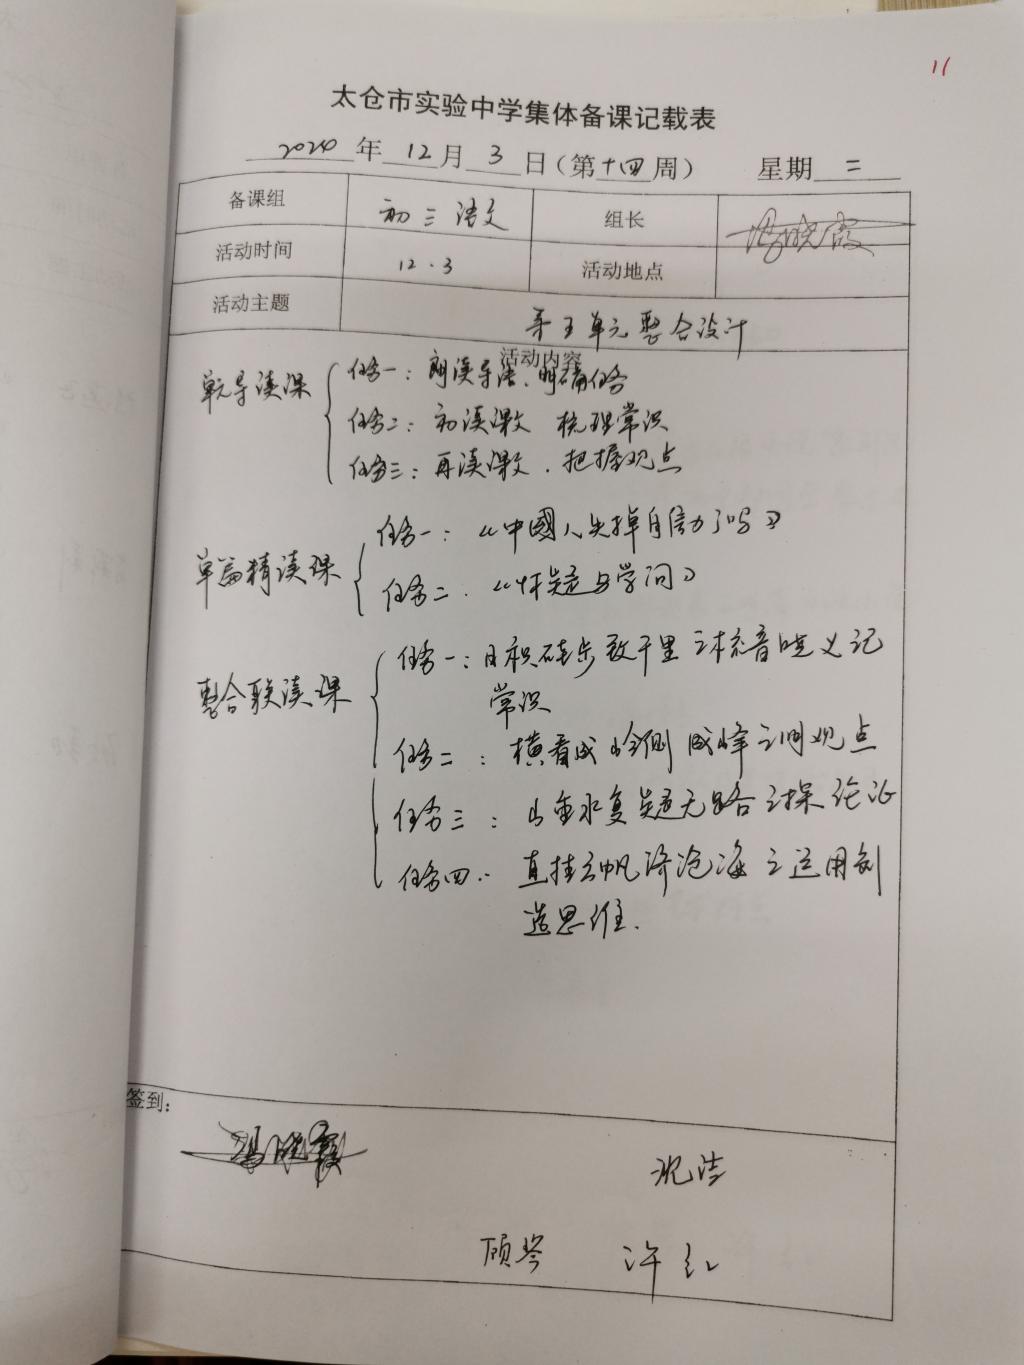 11
太仓市实验中学集体备课记载表
2020年12月3日(第十四周) 星期二
备课组 初三语文 组长 冯晓霞
活动时间 12.3 活动地点
活动主题 第五单元整合设计
活动内容
单元导读课
任务一：朗读导语、明确任务
任务二：初读课文 梳理常识
任务三：再读课文、把握观点
单篇精读课
任务一：《中國人失掉自信力了吗》
任务二.《怀疑与学问》
整合联读课
任务一：日积硅步致千里之核音晓义记
常识
任务二：横看成岭侧成峰之明观点
任务三：山重水复疑无路之探论证
任务四.. 直挂云帆济沧海之运用创
造思维.
签到：
冯晓霞
沈洁
顾琴 许红